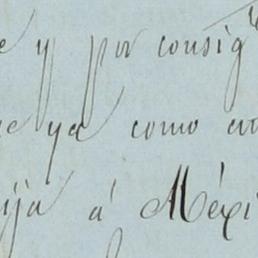 e y por consig
ue ya como en
ija á Méxi